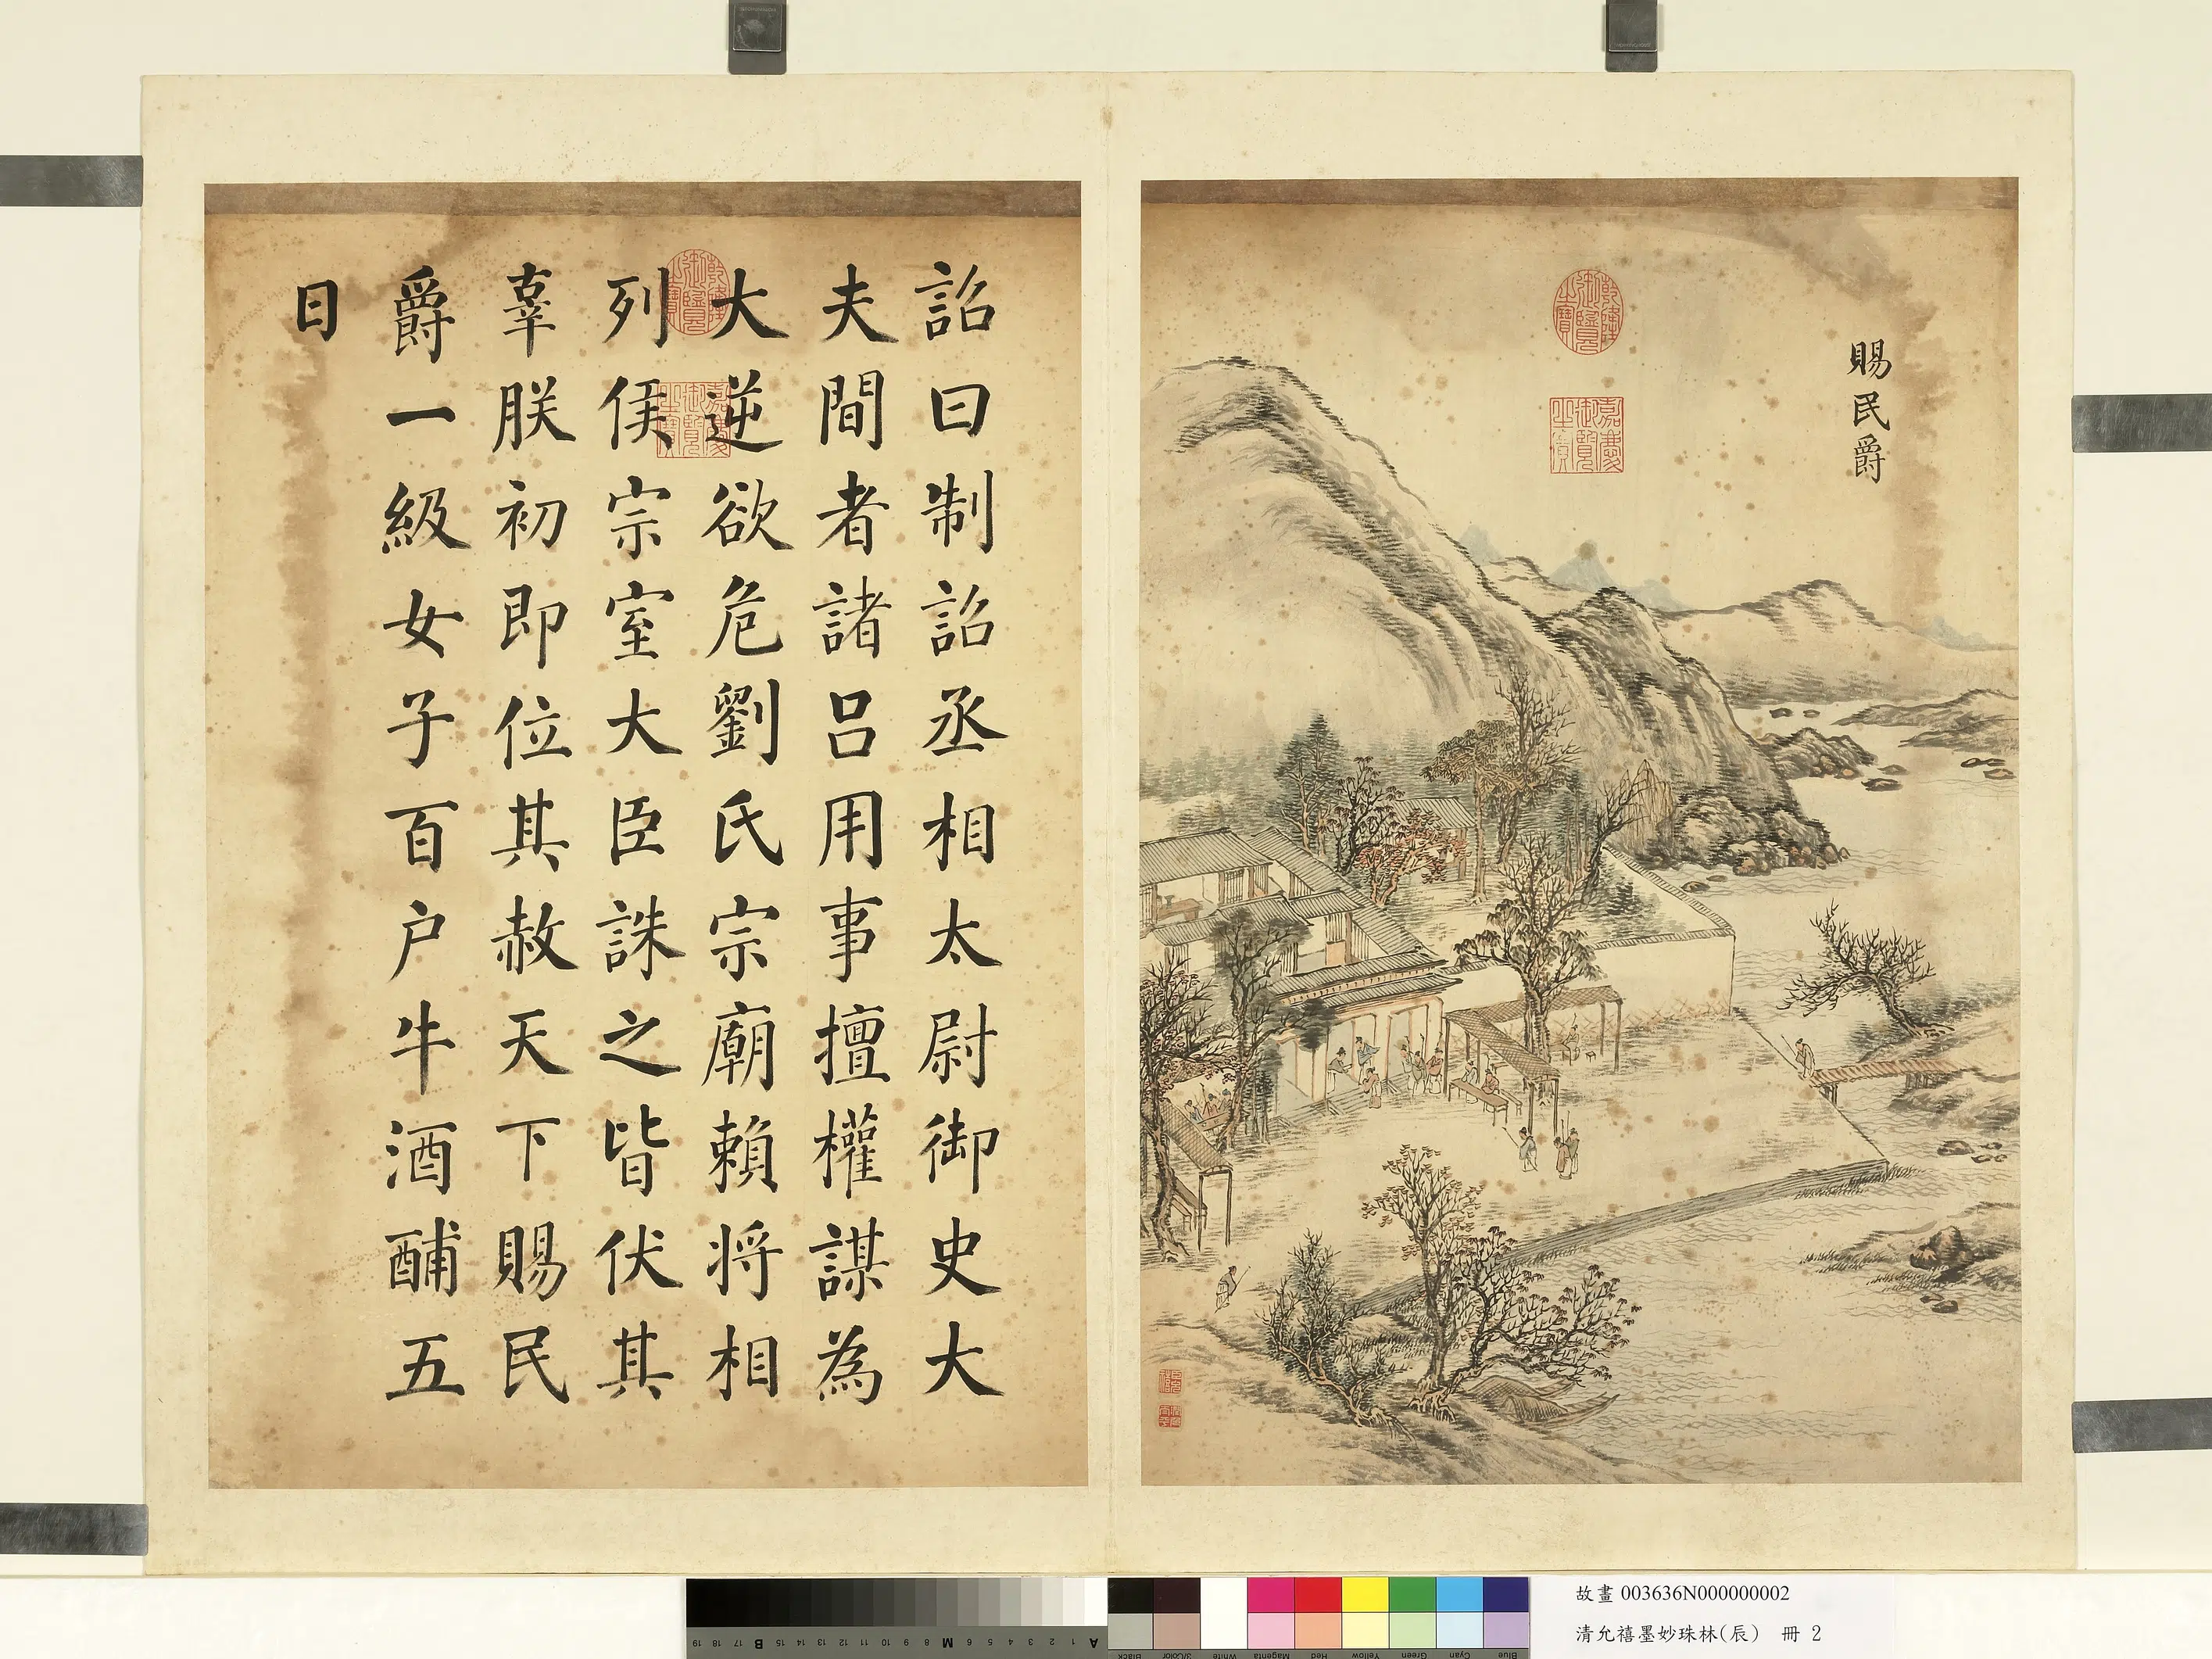 賜民爵
乾隆御覽之寶
嘉慶御覽之寶
詔曰制詔丞相太尉御史大
夫間者諸呂用事擅權謀為
大逆欲危劉氏宗廟賴將相
列侯宗室大臣誅之皆伏其
辜朕初即位其赦天下賜民
爵一級女子百户牛酒酺五
日
乾隆御覽之寶
嘉慶御覽之寶
故畫 003636N000000002
清允禧墨妙珠林(辰) 冊 2
19 18 17 B 15 14 13 12 11 10 9 8 M 6 5 4 3 2 1 A
Black 3/Color White Magenta Red Yellow Green Cyan Blue